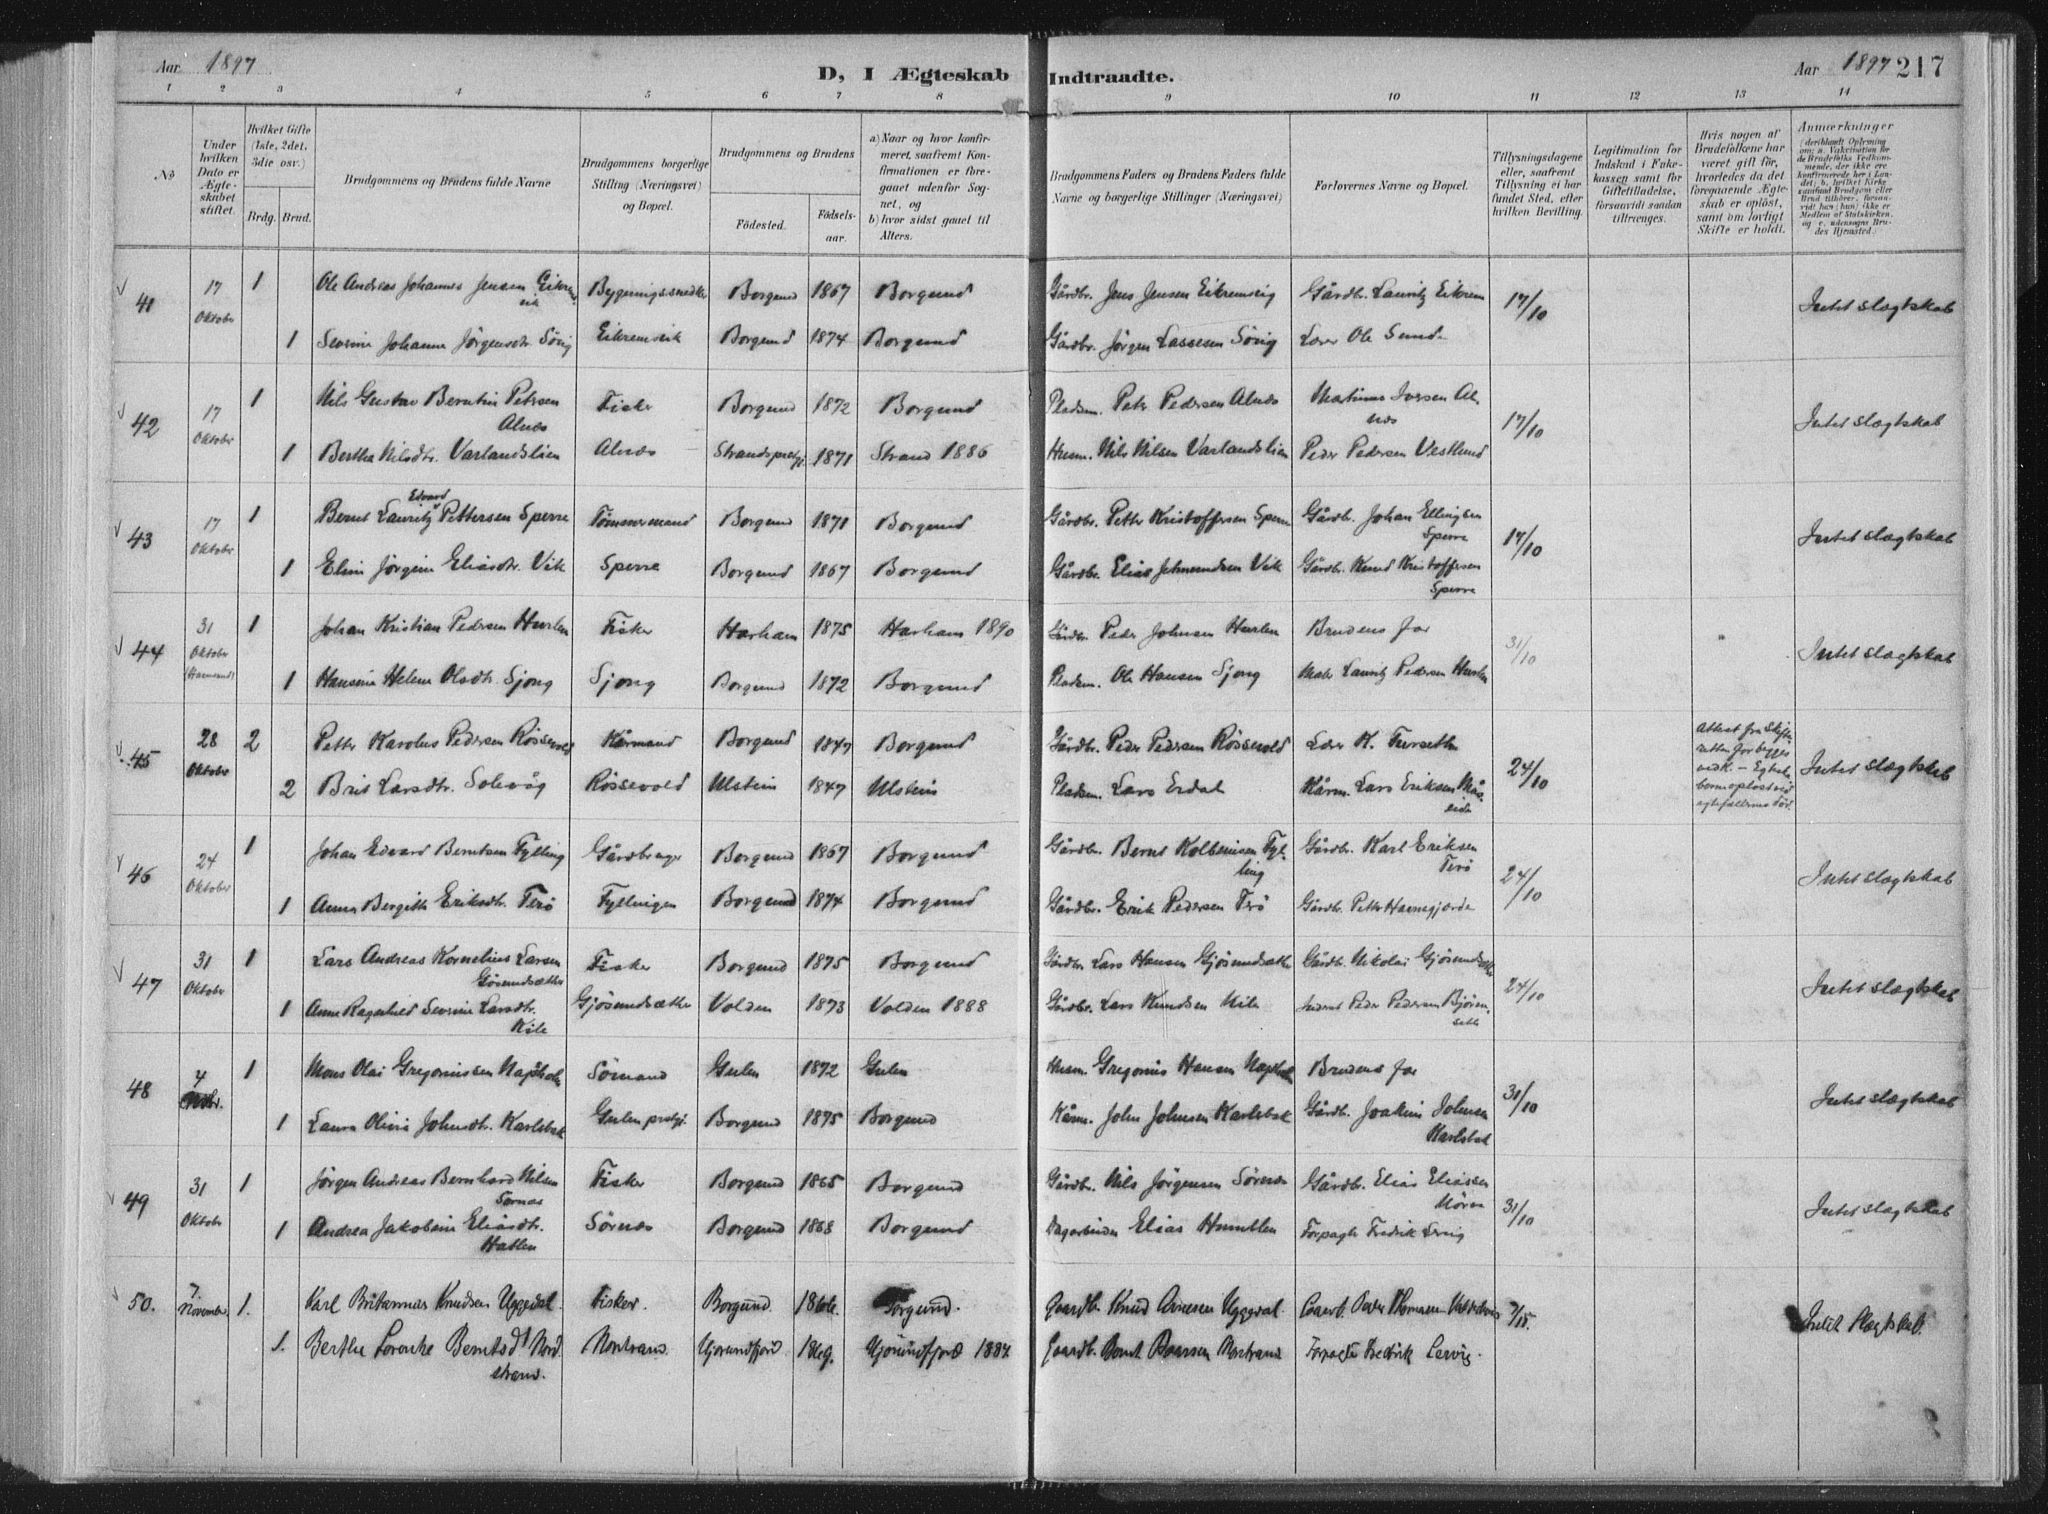 Aar 1897
D, I Ægteskab
Indtraadte.
Aar 1897 217
1 2 3 4 5 6 7 8 9 10 11 12 13 14
No
Under hvilken Dato er Ægteskabet stiftet.
Hvilket Gifte (1ste, 2det, 3die osv.)
Brdg. Brud.
Brudgommens og Brudens fulde Navne
Brudgommens borgerlige Stilling (Næringsvei) og Bopæl.
Brudgommens og Brudens
Fødested. Fødselsaar.
a) Naar og hvor konfirmeret, saafremt Konfirmationen er foregaaet udenfor Sognet, og
b) hvor sidst gaaet til Alters.
Brudgommens Faders og Brudens Faders fulde Navne og borgerlige Stillinger (Næringsvei)
Forlovernes Navne og Bopæl.
Tillysningsdagene eller, saafremt Tillysning ei har fundet Sted, efter hvilken Bevilling.
Legitimation for Indskud i Enkekassen samt for Giftetilladelse, forsaavidt saadan tiltrænges.
Hvis nogen af Brudefolkene har været gift før, hvorledes da det foregaaende Ægteskab er opløst, samt om lovligt Skifte er holdt.
Anmærkninger
41 17 Oktober 1 Ole Andreas Johannes Jensen Eikremsvik Bygningssnedker Borgund 1867 Borgund Gårdbr. Jens Jensen Eikremsvig Gårdbr. Lauritz Eikrem 17/10 Intet slægtskab
1 Severine Johanne Jörgensdtr. Sövig Eikremsvik Borgund 1874 Borgund Gårdbr. Jörgen Lassesen Sövig Lærer Ole Sunde
42 17 Oktober 1 Nils Gustav Berntin Petersen Alnæs Fisker Borgund 1872 Borgund Pladsm. Peter Pedersen Alnæs Martinus Iversen Alnæs 17/10 Intet slægtskab
1 Bertha Nilsdtr. Varlandslien Alnæs Strandsprestgj. 1871 Strand 1886 Husm. Nils Nilsen Varlandslien Peder Pedersen Vestlund
43 17 Oktober 1 Bernt Lauritz Edvard Pettersen Sperre Tømmermand Borgund 1871 Borgund Gårdbr. Petter Kristoffersen Sperre Gårdb. Johan Ellingsen Sperre 17/10 Intet slægtskab
1 Elin Jörgine Eliasdtr. Vik Sperre Borgund 1867 Borgund Gårdbr. Elias Johnundsen Vik Gårdbr. Knud Kristoffersen Sperre
44 31 Oktober 1 Johan Kristian Pedersen Hurlen Fisker Harham 1875 Harham 1890 Gårdbr. Peder Johnsen Hurlen Brudens far 31/10 Intet slægtskab
1 Hansine Helene Olsdtr. Sjong Sjong Borgund 1872 Borgund Pladsm. Ole Hansen Sjong Lauritz Pedersen Hurlen
45 28 Oktober 2 Petter Karolus Pedersen Rössevold Kårmand Borgund 1847 Borgund Gårdbr. Peder Pedersen Rössevold Lærer K. Furseth 24/10 Attest fra Skifteretten for begges vedk. – Egteskaberne opløst ved egtefællernes död. Intet slægtskab
2 Brit Larsdtr. Solevåg Rössevold Ulstein 1847 Ulstein Pladsm. Lars Erdal Kårm. Lars Eriksen Måseide
46 24 Oktober 1 Johan Edvard Berntsen Fylling Gårdbruger Borgund 1867 Borgund Gårdbr. Bernt Kolbeinsen Fylling Gårdbr. Karl Eriksen Terö 24/10 Intet slægtskab
1 Anna Bergitte Eriksdtr. Terö Fyllingen Borgund 1874 Borgund Gårdbr. Erik Pedersen Terö Gårdbr. Petter Havnegjerde
47 31 Oktober 1 Lars Andreas Kornelius Larsen Gjösundsæther Fisker Borgund 1875 Borgund Gårdbr. Lars Hansen Gjösundsæther Gårdb. Nikolai Gjösundsæther 24/10 Intet slægtskab
1 Anne Ragnhild Severine Larsdtr. Kile Gjösundsæther Volden 1873 Volden 1888 Gårdbr. Lars Knudsen Kile Inderst Peder Pedersen Bjørensett
48 4 Novbr. 1 Mons Olai Gregoriussen Napsholm Sömand Gulen 1872 Gulen Husm. Gregorius Hansen Napsholm Brudens far 31/10 Intet slægtskab
1 Laura Olivia Johnsdtr. Karlsbak Gulen prstgj. Borgund 1875 Borgund Kårm. John Johnsen Karlsbak Gårdbr. Joakim Johnsen Karlsbak
49 31 Oktober 1 Jörgen Andreas Bernhard Nilsen Sørnæs Fisker Borgund 1865 Borgund Gårdbr. Nils Jörgensen Sörnæs Gårdbr. Elias Eliassen 31/10 Intet slægtskab
1 Andrea Jakobine Eliasdtr. Hatlen Sörnæs Borgund 1868 Borgund Dagarbeider Elias Humblen Forpagter Fredrik Lervig
50. 7. November. 1. Karl Britannus Knudsen Uggedal. Fisker. Borgund. 1866. Borgund. Gaardb. Knud Arnesen Uggedal Gaardb. Peder Thomasen Intet Slægtskab.
1. Berthe Lovenke Berntsdt Nordstrand. Nordstrand Hjørundfjord 1869. Hjørundfjord 1884. Gaardb. Bernt Baarsen Nordstrand Forpagter Fredrik Lervig.